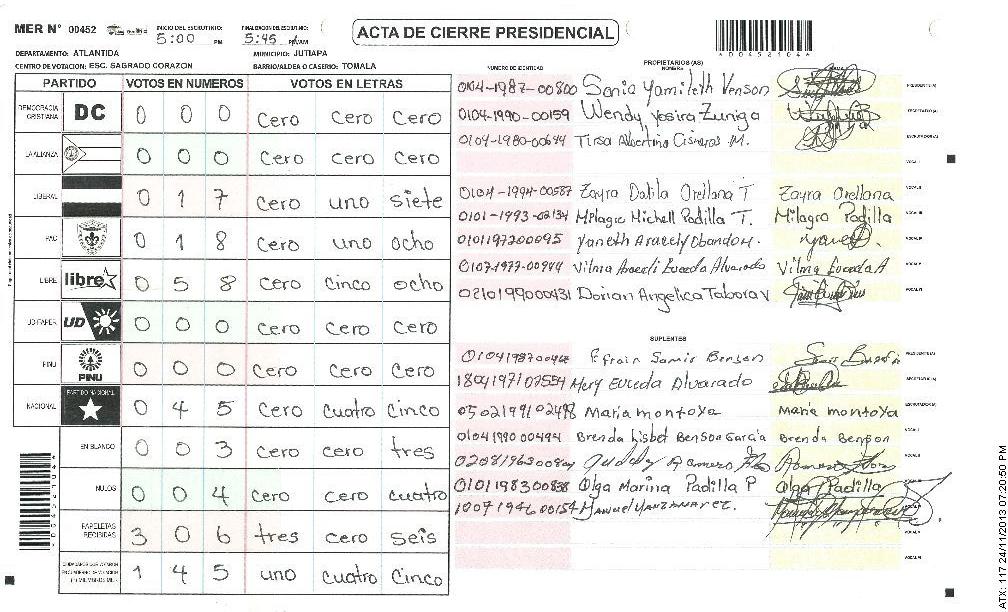 MER N° 00452 INICIO DEL ESCRUTINIO: 5:00 PM FINALIZACION DEL ESCRUTINIO: 5:45 PM/AM
ACTA DE CIERRE PRESIDENCIAL
*00452104*
DEPARTAMENTO: ATLANTIDA MUNICIPIO: JUTIAPA
CENTRO DE VOTACION: ESC. SAGRADO CORAZON BARRIO/ALDEA O CASERIO: TOMALA
PARTIDO VOTOS EN NUMEROS VOTOS EN LETRAS
DEMOCRACIA CRISTIANA DC 0 0 0 Cero Cero Cero
LA ALIANZA 0 0 0 Cero Cero Cero
LIBERAL 0 1 7 Cero uno siete
PAC 0 1 8 Cero uno ocho
LIBRE libre 0 5 8 Cero Cinco ocho
UD-FAPER UD 0 0 0 Cero Cero Cero
PINU PINU 0 0 0 Cero Cero Cero
NACIONAL PARTIDO NACIONAL 0 4 5 Cero Cuatro Cinco
EN BLANCO 0 0 3 Cero Cero tres
NULOS 0 0 4 Cero Cero Cuatro
PAPELETAS RECIBIDAS 3 0 6 tres Cero seis
1 4 5 uno Cuatro Cinco
NUMERO DE IDENTIDAD PROPIETARIOS (AS) NOMBRE
0104-1987-00800 Sonia Yamileth Venson PRESIDENTE (A)
0104-1990-00159 Wendy Yesira Zuniga SECRETARIO (A)
0104-1980-00644 Tirsa Albertina Cisneros M. ESCRUTADOR (A)
VOCAL I
0104-1994-00587 Zayra Dalila Orellana T Zayra Orellana VOCAL II
0101-1993-02134 Milagro Michell Padilla T. Milagro Padilla VOCAL III
0101197200095 Yaneth Aracely Obando H. VOCAL IV
0107-1977-00944 Vilma Araceli Euceda Alvarado Vilma Euceda A VOCAL V
0210199000431 Dorian Angelica Tabora V VOCAL VI
SUPLENTES
Efrain Samir Benson PRESIDENTE (A)
1804197102554 Mery Euceda Alvarado SECRETARIO (A)
0502199102498 Maria montoya Maria montoya ESCRUTADOR (A)
0104199000494 Brenda Lisbet Benson Garcia Brenda Benson VOCAL I
Romero VOCAL II
0101198300838 Olga Marina Padilla P Olga Padilla
1007194600154 Manuel Manzanarez.
VOCAL V
VOCAL VI
ATX: 117 24/11/2013 07:20:50 PM